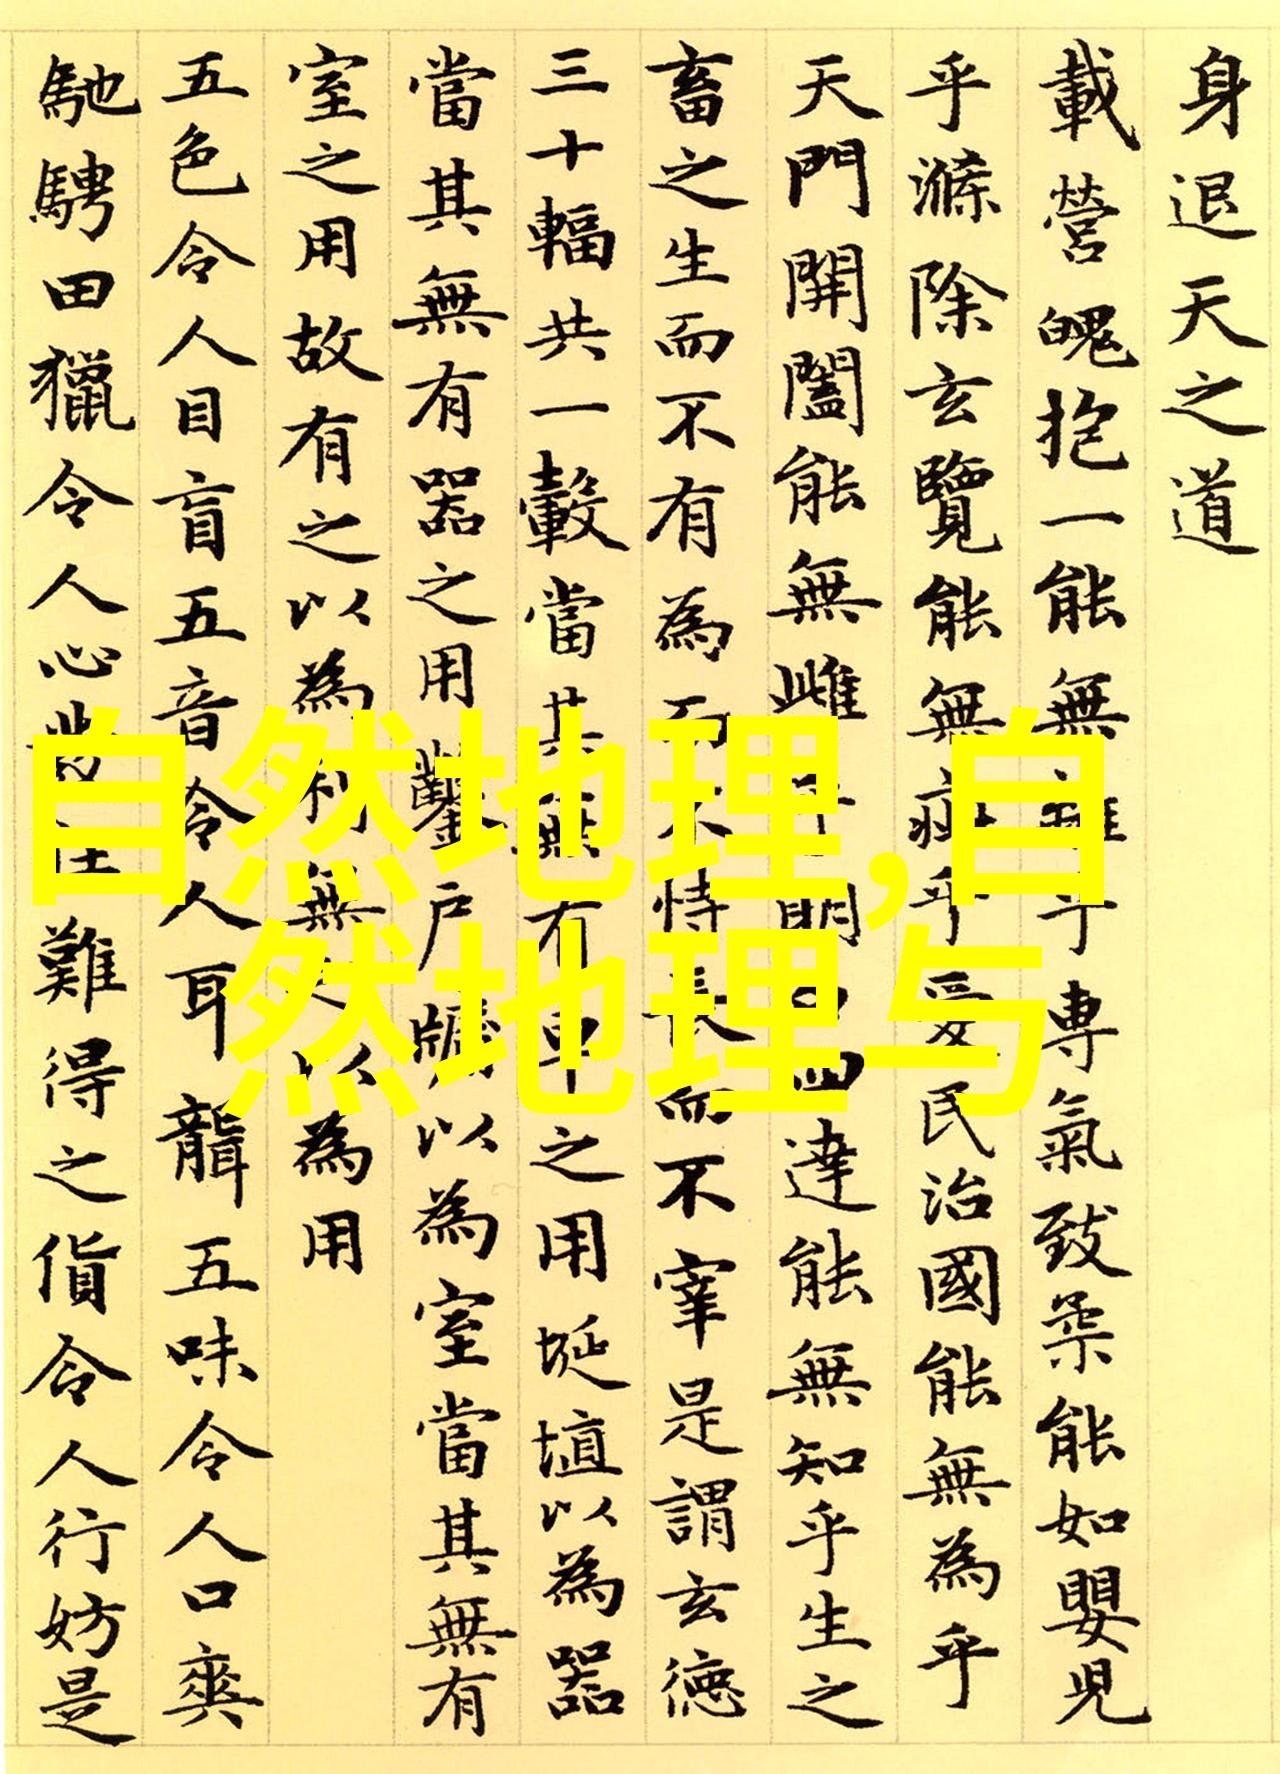 身退天之道
載營魄抱一能無離乎專氣致柔能如嬰児
乎滌除玄覽能無疵乎愛民治國能無為乎
天門開闔能無雌乎明白四達能無知乎生之
畜之生而不有為而不恃長而不宰是謂玄德
三十輻共一轂當其無有車之用埏埴以為器
當其無有器之用鑿戶牖以為室當其無有
室之用故有之以為利無之以為用
五色令人目盲五音令人耳聾五味令人口爽
馳騁田獵令人心發狂難得之貨令人行妨是
自然地理,自
然地理与